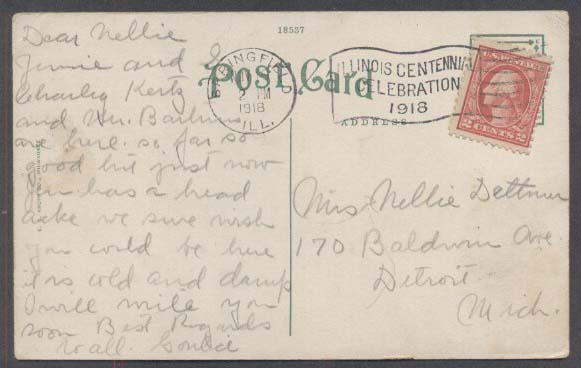 18537
Post Card
SPRINGFIELD
PM
1918
ILL.
ILLINOIS CENTENNIAL
CELEBRATION
1918
ADDRESS
U.S. POSTAGE
2 CENTS 2
Dear Nellie
Jennie and
Charley Kertz
and Mr.
are here. so far so
good but just now
Jen has a head
ache we sure wish
you could be here
it is cold and damp
I will write you
soon Best Regards
to all.
Mrs Nellie Dettmer
170 Baldwin Ave.
Detroit
Mich.